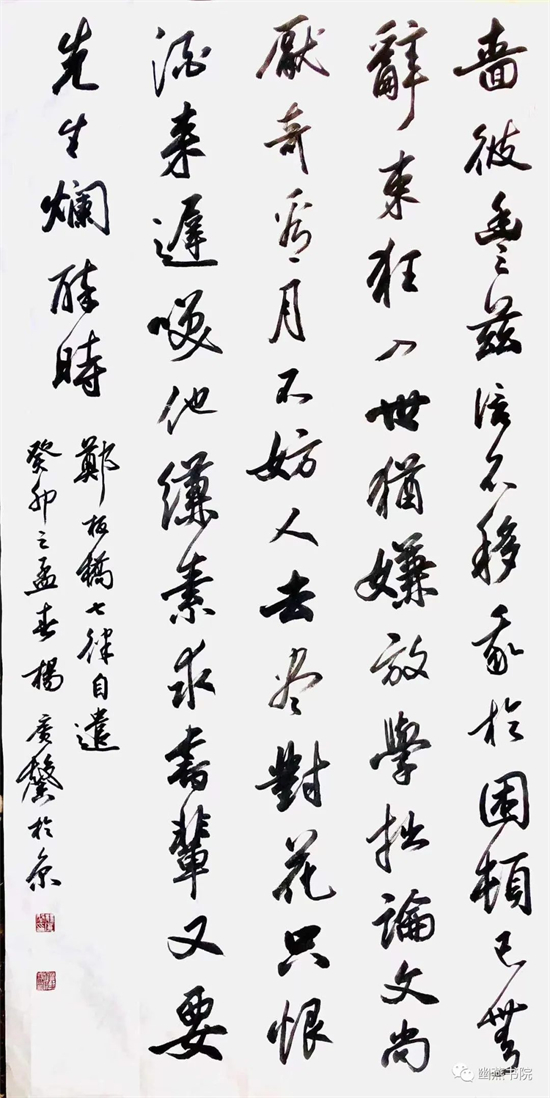 嗇彼豐茲信不移我於困頓已無
辭束狂入世猶嫌放學拙論文尚
厭奇看月不妨人去盡對花只恨
酒来遲咲他縑素求書輩又要
先生爛醉時
鄭板橋七律自遣
癸卯之孟春楊廣馨於京
幽燕书院